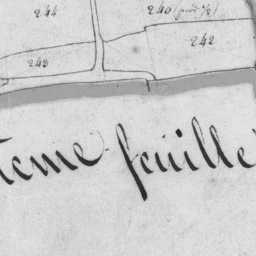 244 240 (prov. 1/2)
243 242
ième feuille